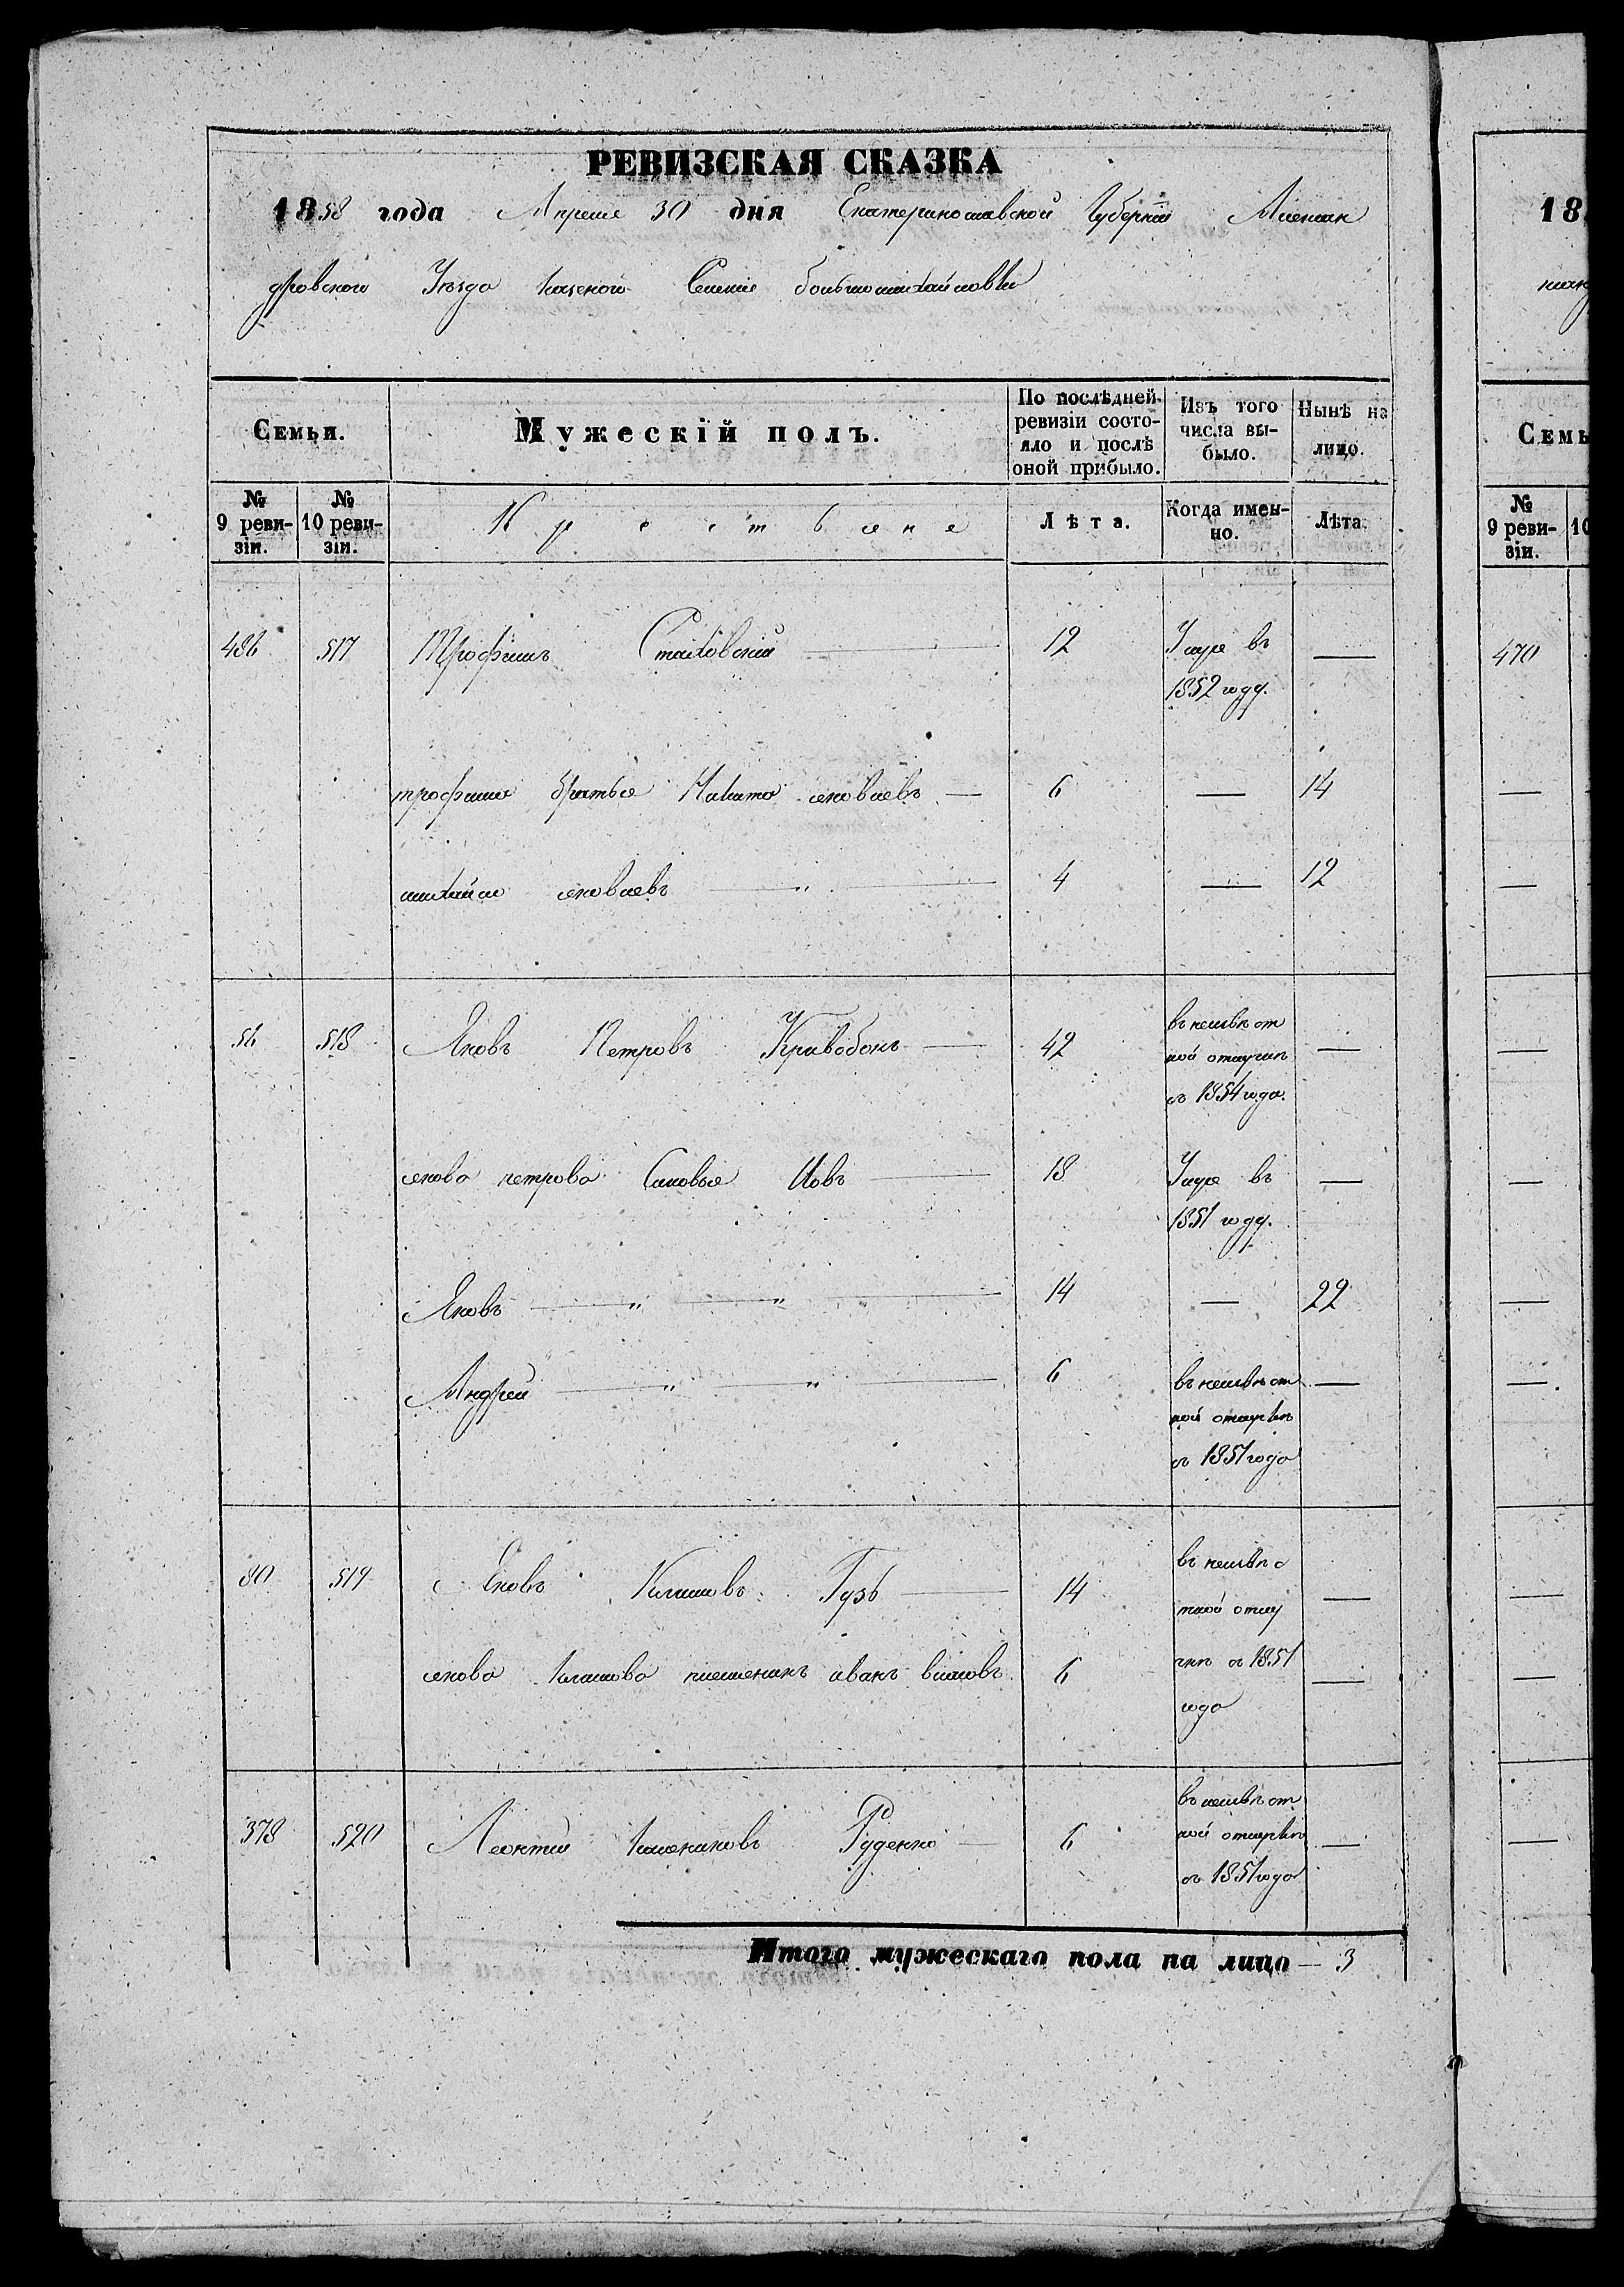 РЕВИЗСКАЯ СКАЗКА
1858 года Апреля 30 дня Екатеринославской Губерніи Алексан
дровского Уезда казеного Селения большемихайловки
Семьи. Мужескій полъ. По послѣдней ревизіи состояло и послѣ оной прибыло. Изъ того числа выбыло. Нынѣ на лицо.
№ 9 ревизіи. № 10 ревизіи. Крестьяне Лѣта. Когда именно. Лѣта.
486 517 Трофимъ Стаховский 12 Умре въ —
1852 году.
трофима братья Никита яковлевъ — 6 — 14
михайло яковлевъ — " — 4 — 12
56 518 Яковъ Петровъ Кривобокъ — 42 въ неизвѣст
ной отлучке —
съ 1854 года.
якова петрова Сыновья Иовъ — 18 Умре въ —
1851 году.
Яковъ — " — " — 14 — 22
Андрей — " — " — 6 въ неизвѣст —
ной отлучке
съ 1851 года
80 519 Яковъ Климовъ Гузь — 14 въ неизвѣс —
тной отлу
якова климова племеникъ иванъ 6 чке съ 1851 —
года
378 520 Леонтий Руденко — 6 въ неизвѣст
ной отлучке —
съ 1851 года
Итого мужескаго пола на лицо — 3
18
Семь
№ 9 ревизіи. 10
470